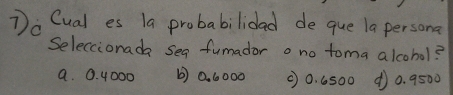 7)¿ Cual es la probabilidad de que la persona
Seleccionada sea fumador o no toma alcohol?
a. 0.4000 b) 0.6000 c) 0.6500 d) 0.9500